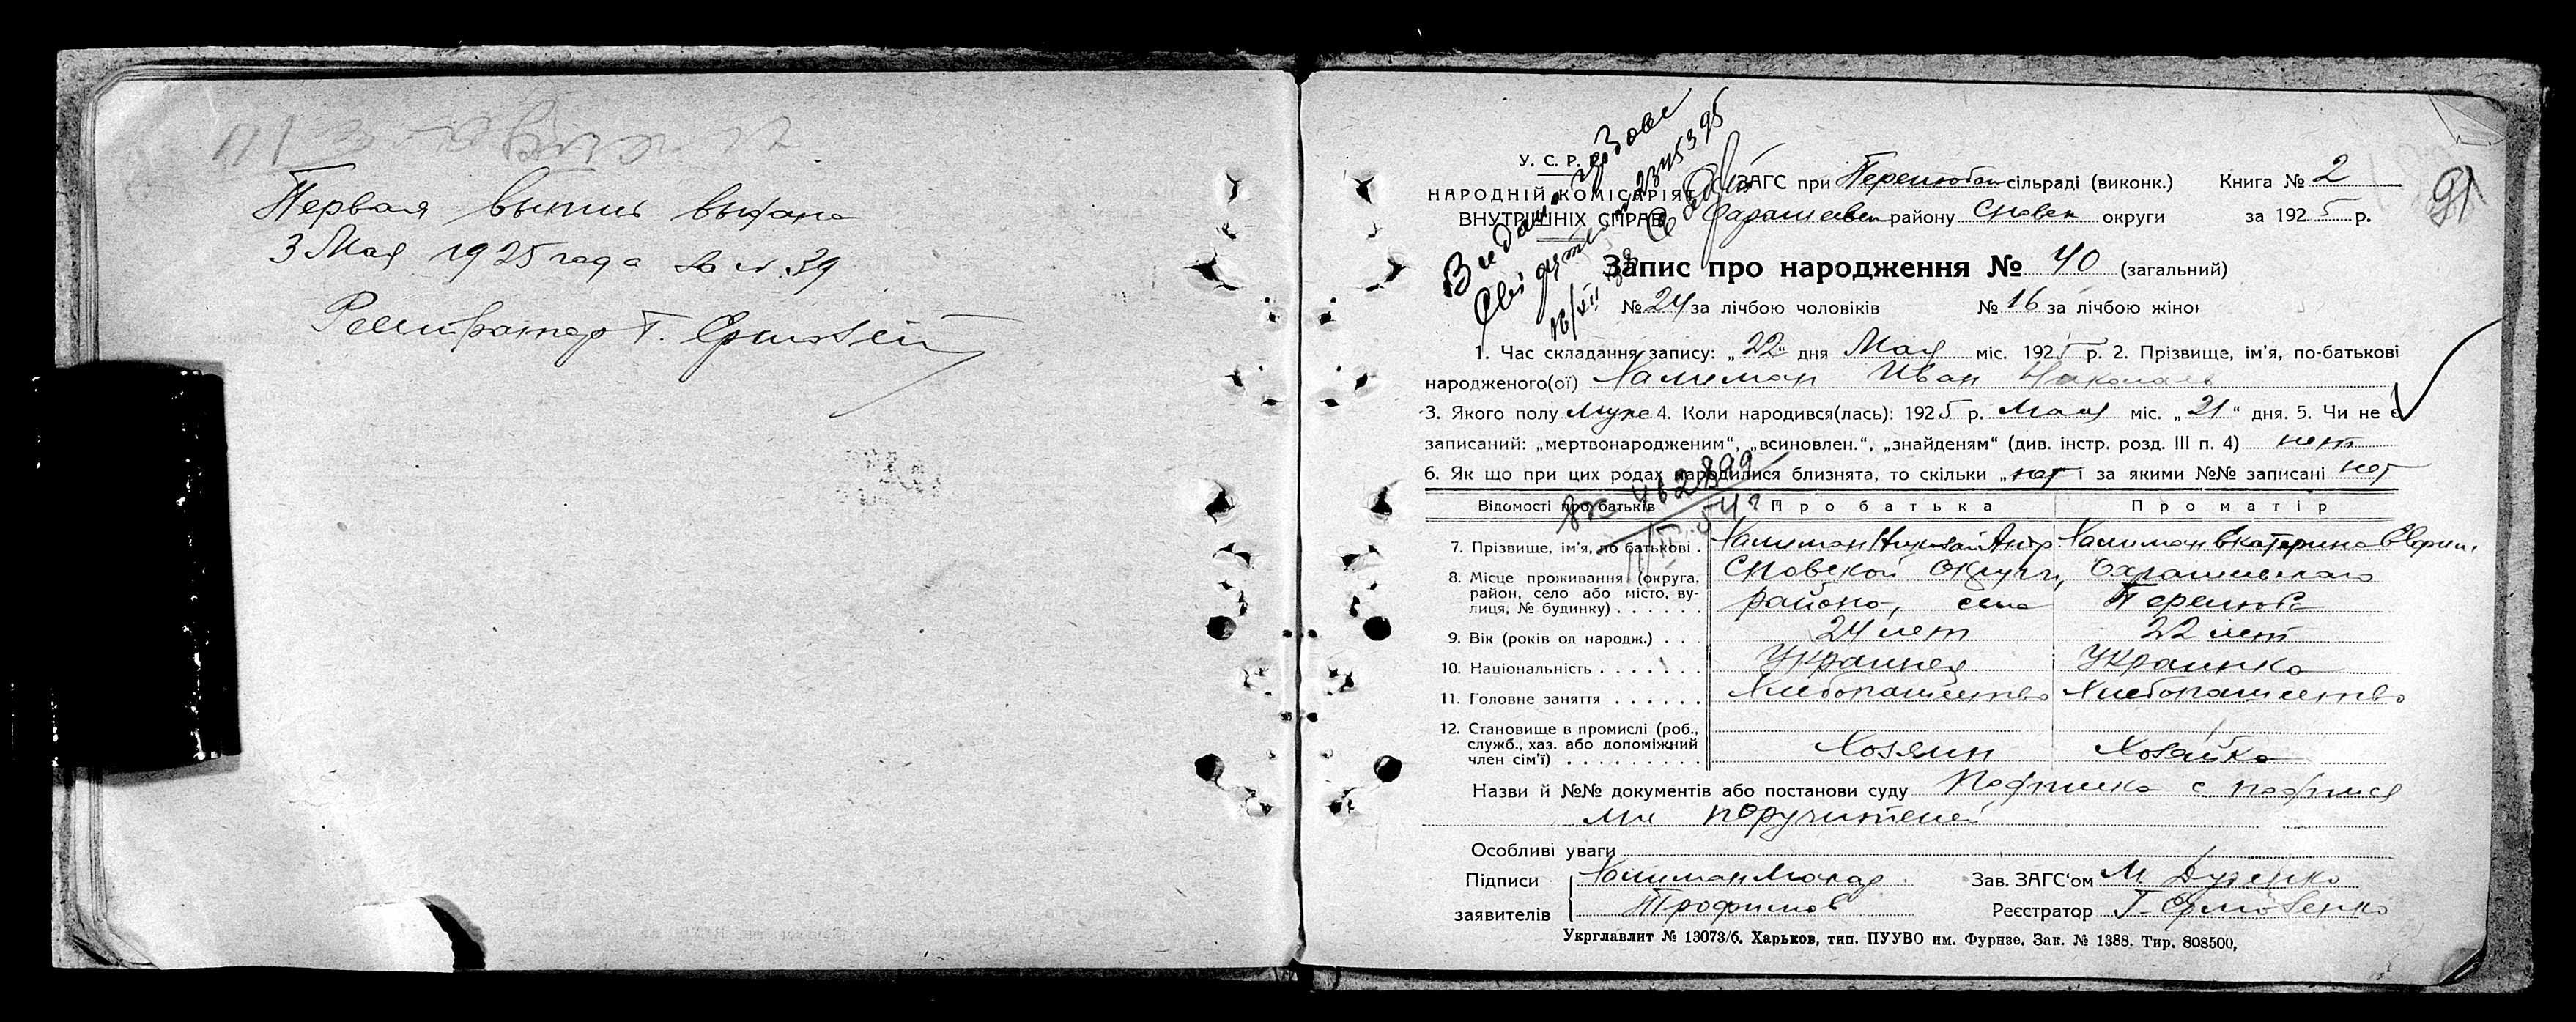 Первая выпись выдана
3 Мая 1925 года за №. 39
Регистратор Т.
У. С. Р. Р.
НАРОДНІЙ КОМІСАРІЯТ
ВНУТРІШНІХ СПРАВ
ЗАГС при Перелюбск сільраді (виконк.) Книга № 2
району Сновск округи за 1925 р.
91
Запис про народження № 40 (загальний)
№ 24 за лічбою чоловіків № 16 за лічбою жінок
1. Час складання запису: „22" дня Мая міс. 1925 р. 2. Прізвище, ім'я, по-батькові
народженого(ої) Халиман Иван Николаев
3. Якого полу муже 4. Коли народився(лась): 1925 р. Мая міс. „21" дня. 5. Чи не є
записаний: „мертвонародженим", „всиновлен.", „знайденям" (див. інстр. розд. III п. 4) нет
6. Як що при цих родах народилися близнята, то скільки „нет і за якими №№ записані нет
Відомості про батьків Про батька Про матір
7. Прізвище, ім'я, по батькові . Халиман Николай Андр. Халиман Екатерина
8. Місце проживання (округа, Сновской округи,
район, село або місто, ву- района, села Перелюба
лиця, № будинку) . . . . . .
9. Вік (років од народж.) . . . 24 лет 22 лет
10. Національність . . . . . . Украинец Украинка
11. Головне заняття . . . . . . Хлебопашество Хлебопашество
12. Становище в промислі (роб.,
служб., хаз. або допоміжний Хозяин Хозяйка
член сім'ї) . . . . . . . . .
Назви й №№ документів або постанови суду Подписка с подпися
ми поручителей
Особливі уваги
Підписи Халиман Зав. ЗАГС'ом М.
заявителів Трофимов Реєстратор Т.
Укрглавлит № 13073/6. Харьков, тип. ПУУВО им. Фурнзе. Зак. № 1388. Тир. 808500,